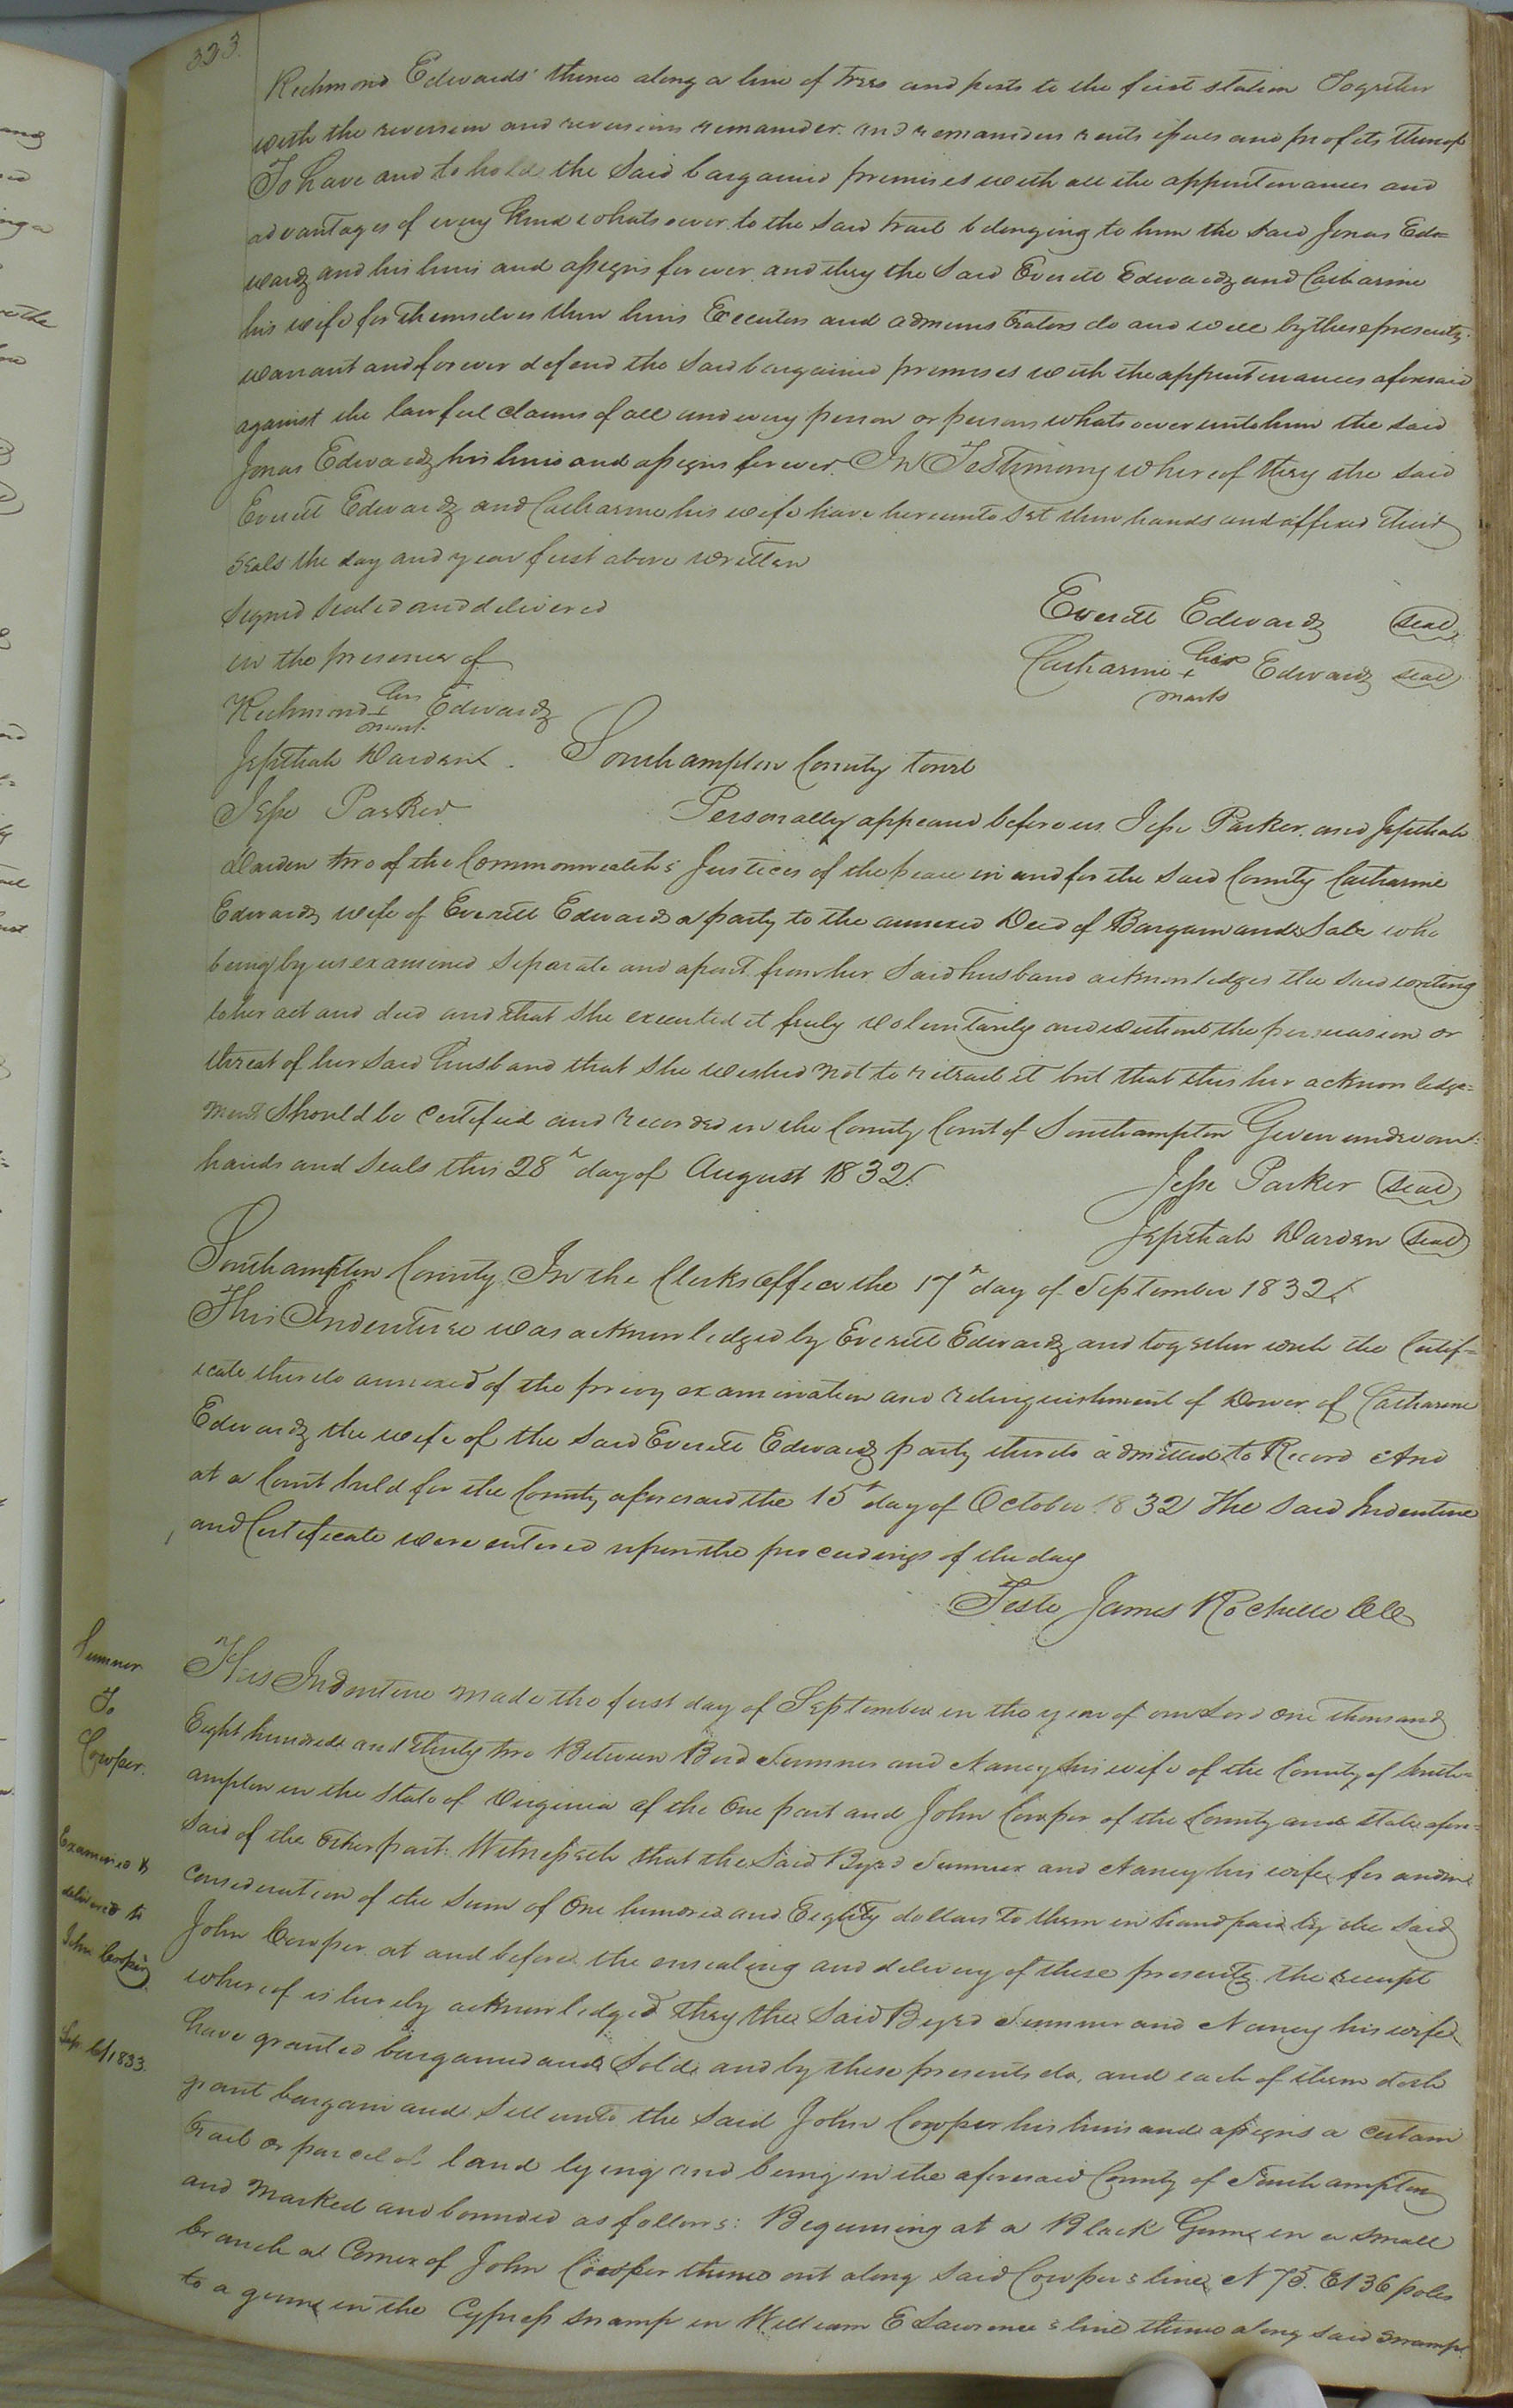 333.
Richmond Edwards' thence along a line of trees and posts to the first station Together
with the reversion and reversions remainder and remainders rents issues and profits thereof
To have and to hold the said bargained premises with all the appurtenances and
advantages of every kind whatsoever to the said tract belonging to him the said Jonas Ed=
wards and his heirs and assigns forever and they the said Everett Edwards and Catharine
his wife for themselves their heirs Executors and administrators do and will by these presents
warrant and forever defend the said bargained premises with the appurtenances aforesaid
against the lawful claims of all and every person or persons whatsoever unto him the said
Jonas Edwards his heirs and assigns forever In Testimony whereof they the said
Everett Edwards and Catharine his wife have hereunto set their hands and affixed their
seals the day and year first above written
Signed sealed and delivered
in the presence of
Everett Edwards seal
Catharine her + mark Edwards seal
Richmond his + mark Edwards
Jepthah Darden
Jesse Parker
Southampton County towit
Personally appeared before us Jesse Parker and Jepthah
Darden two of the Commonwealth's Justices of the peace in and for the said County Catharine
Edwards wife of Everett Edwards a party to the annexed Deed of Bargain and Sale who
being by us examined separate and apart from her said husband acknowledges the said writing
to her act and deed and that she executed it freely voluntarily and without the persuasion or
threat of her said husband that she wished not to retract it but that this her acknowledge=
ment should be certified and recorded in the County Court of Southampton Given under our
hands and seals this 28th day of August 1832.
Jesse Parker seal
Jepthah Darden seal
Southampton County In the Clerks office the 17th day of September 1832.
This Indenture was acknowledged by Everett Edwards and together with the Certif=
icate thereto annexed of the privy examination and relinquishment of Dower of Catharine
Edwards the wife of the said Everett Edwards party thereto admitted to Record And
at a Court held for the County aforesaid the 15th day of October 1832 The said Indenture
and Certificate were entered upon the proceedings of the day
Teste James Rochelle Cl C
Sumner
To
Cowper.
Examined &
delivered to
John Cowper
Sep 1833
This Indenture made the first day of September in the year of our Lord one thousand
Eight hundred and thirty two Between Bird Sumner and Nancy his wife of the County of South=
ampton in the State of Virginia of the one part and John Cowper of the County and state afore=
said of the other part: Witnesseth that the said Byrd Sumner and Nancy his wife for and in
consideration of the sum of One hundred and Eighty dollars to them in hand paid by the said
John Cowper at and before the ensealing and delivery of these presents the receipt
whereof is hereby acknowledged they the said Byrd Sumner and Nancy his wife
have granted bargained and sold and by these presents do, and each of them doth
grant bargain and sell unto the said John Cowper his heirs and assigns a certain
tract or parcel of land lying and being in the aforesaid County of Southampton
and marked and bounded as follows: Beginning at a Black Gum in a small
branch a Corner of John Cowper thence out along said Cowper's line N 75. E 136 poles
to a gum in the Cypress swamp in William E Lawrence's line thence along said swamp